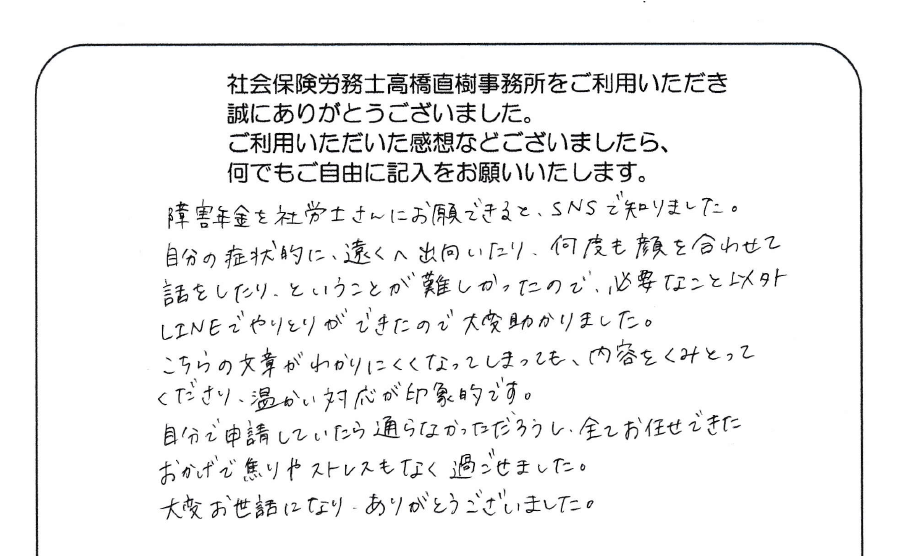 社会保険労務士高橋直樹事務所をご利用いただき
誠にありがとうございました。
ご利用いただいた感想などございましたら、
何でもご自由に記入をお願いいたします。
障害年金を社労士さんにお願できると、SNSで知りました。
自分の症状的に、遠くへ出向いたり、何度も顔を合わせて
話をしたり、ということが難しかったので、必要なこと以外
LINEでやりとりができたので大変助かりました。
こちらの文章がわかりにくくなってしまっても、内容をくみとって
くださり、温かい対応が印象的です。
自分で申請していたら通らなかっただろうし、全てお任せできた
おかげで焦りやストレスもなく過ごせました。
大変お世話になり、ありがとうございました。